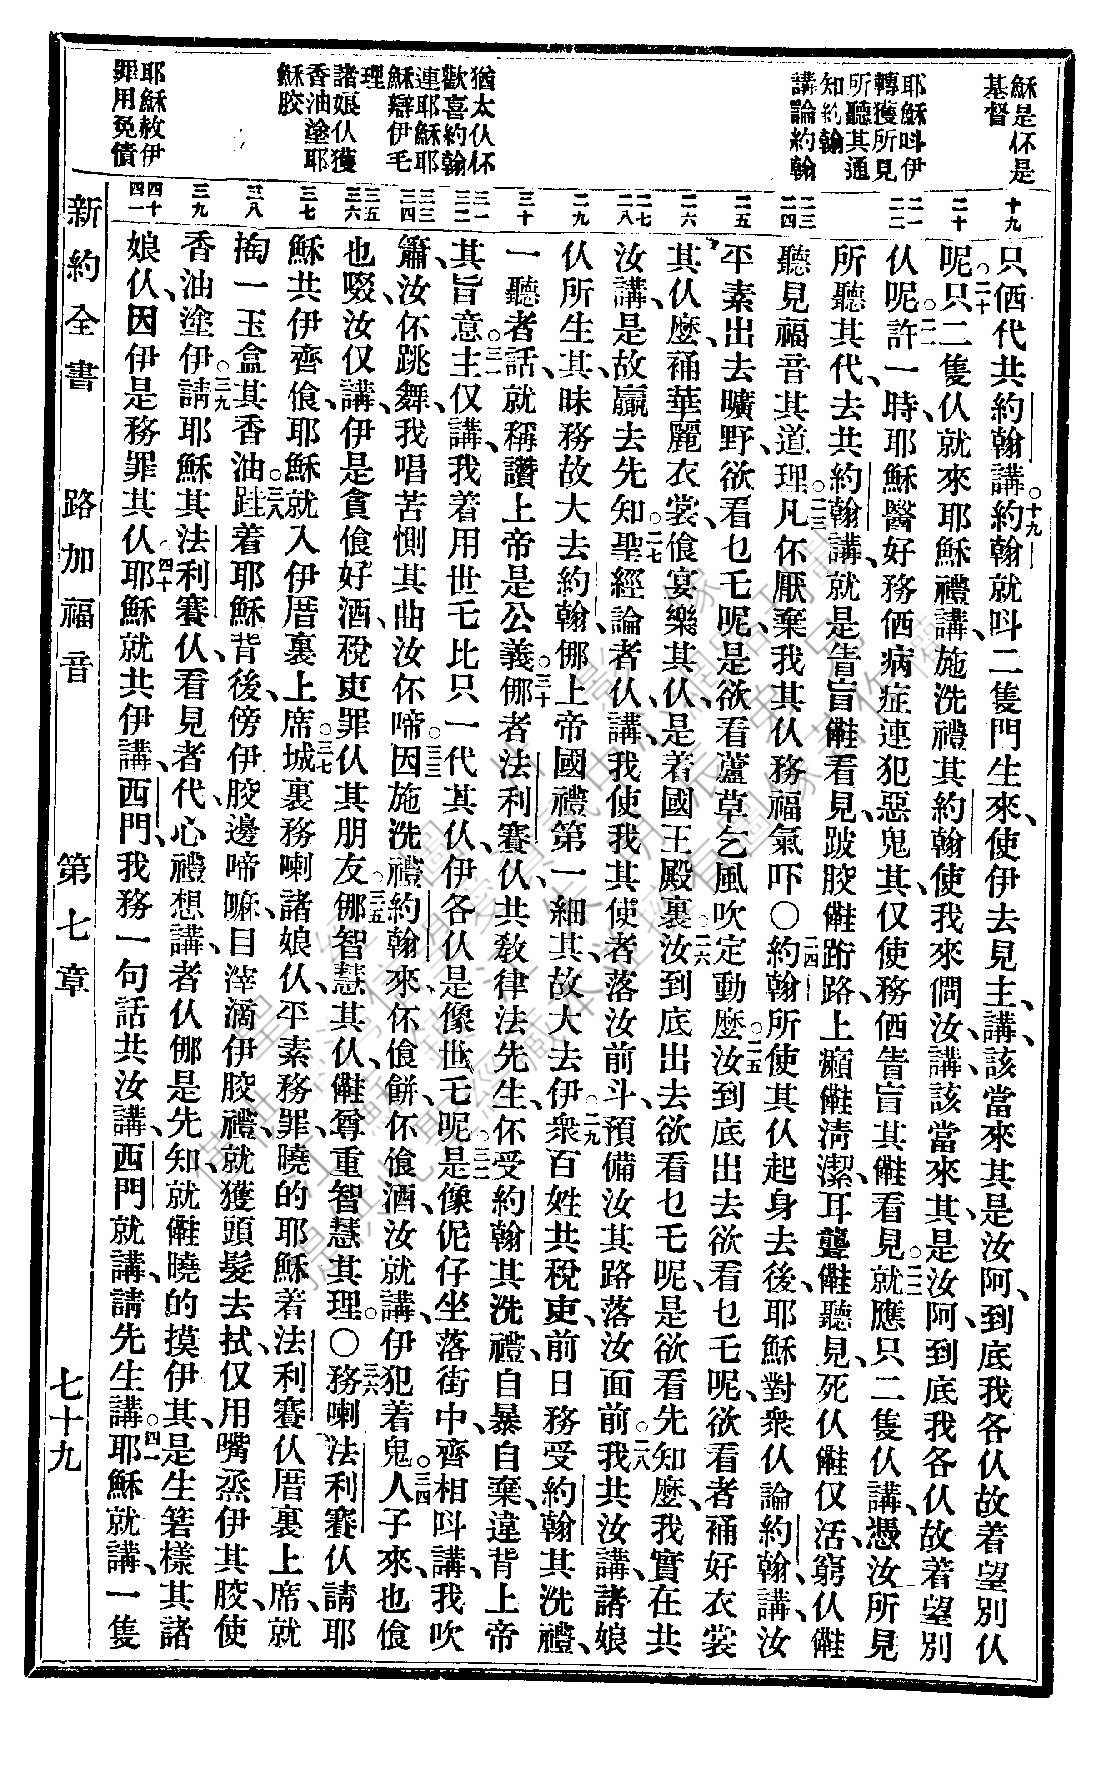 穌是伓是
基督
耶穌呌伊
轉獲所見
所聽其通
知約翰
講論約翰
猶太仈伓
歡喜約翰
連耶穌耶
穌辯伊乇
理
諸娘仈獲
香油塗耶
穌骹
耶穌赦伊
罪用免債
十九
二十
二一
二二
二三
二四
二五
二六
二七
二八
二九
三十
三一
三二
三三
三四
三五
三六
三七
三八
三九
四十
四一
只個代共約翰講○十九約翰就呌二隻門生來、使伊去見主、講、該當來其是汝阿、到底我各仈故着望別仈
呢○二十只二隻仈就來耶穌禮講、施洗禮其約翰、使我來問汝、講、該當來其、是汝阿、到底我各仈故着望別
仈呢○二一許一時、耶穌醫好務價病症連犯惡鬼其、仅使務價眚盲其、儺看見○二二就應只二隻仈講、憑汝所見
所聽其代、去共約翰講、就是眚盲儺看見、跛骹儺跡路、上癩儺淸潔、耳聾儺聽見、死仈儺仅活、窮仈儺
聽見福音其道理○二三凡伓厭棄我其仈務福氣吓○二四約翰所使其仈起身去後、耶穌對衆仈論約翰講、汝
平素出去曠野、欲看乜乇呢、是欲看蘆草乞風吹定動麽○二五汝到底出去欲看乜乇呢、欲看者𧛸好衣裳
其仈麽、𧛸華麗衣裳、飡宴樂其仈、是着國王殿裏○二六汝到底出去欲看乜乇呢、是欲看先知麽、我實在共
汝講、是、故贏去先知○二七聖經論者仈、講、我使我其使者落汝前斗、預備汝其路落汝面前○二八我共汝講、諸娘
仈所生其、昧務故大去約翰、㑚上帝國禮第一細其、故大去伊○二九衆百姓共稅吏、前日務受約翰其洗禮、
一聽者話、就稱讚上帝是公義○三十㑚者法利賽仈、共敎律法先生、伓受約翰其洗禮、自暴自棄、違背上帝
其旨意○三一主仅講、我着用世乇比只一代其仈、伊各仈是像世乇呢○三二是像伲仔坐落街中、齊相呌講、我吹
簫、汝伓跳舞、我唱苦惻其曲汝伓啼○三三因施洗禮約翰來、伓飡餅、伓飡酒、汝就講、伊犯着鬼○三四人子來、也飡
也啜、汝仅講、伊是貪飡好酒、稅吏罪仈其朋友○三五㑚智慧其仈、儺尊重智慧其理○○三六務喇法利賽仈、請耶
穌共伊齊飡、耶穌就入伊厝裏上席○三七城裏務喇諸娘仈、平素務罪、曉的耶穌着法利賽仈厝裏上席、就
掏一玉盒其香油○三八跬着耶穌背後、傍伊骹邊啼嘛、目滓滴伊骹禮、就獲頭髮去拭、仅用嘴烝伊其骹、使
香油塗伊○三九請耶穌其法利賽仈看見者代、心禮想講、者仈㑚是先知、就儺曉的摸伊其、是生箬樣其諸
娘仈、因伊是務罪其仈○四十耶穌就共伊講、西門、我務一句話共汝講、西門就講、請先生講○四一耶穌就講、一隻
新約全書
路加福音
第七章
七十九